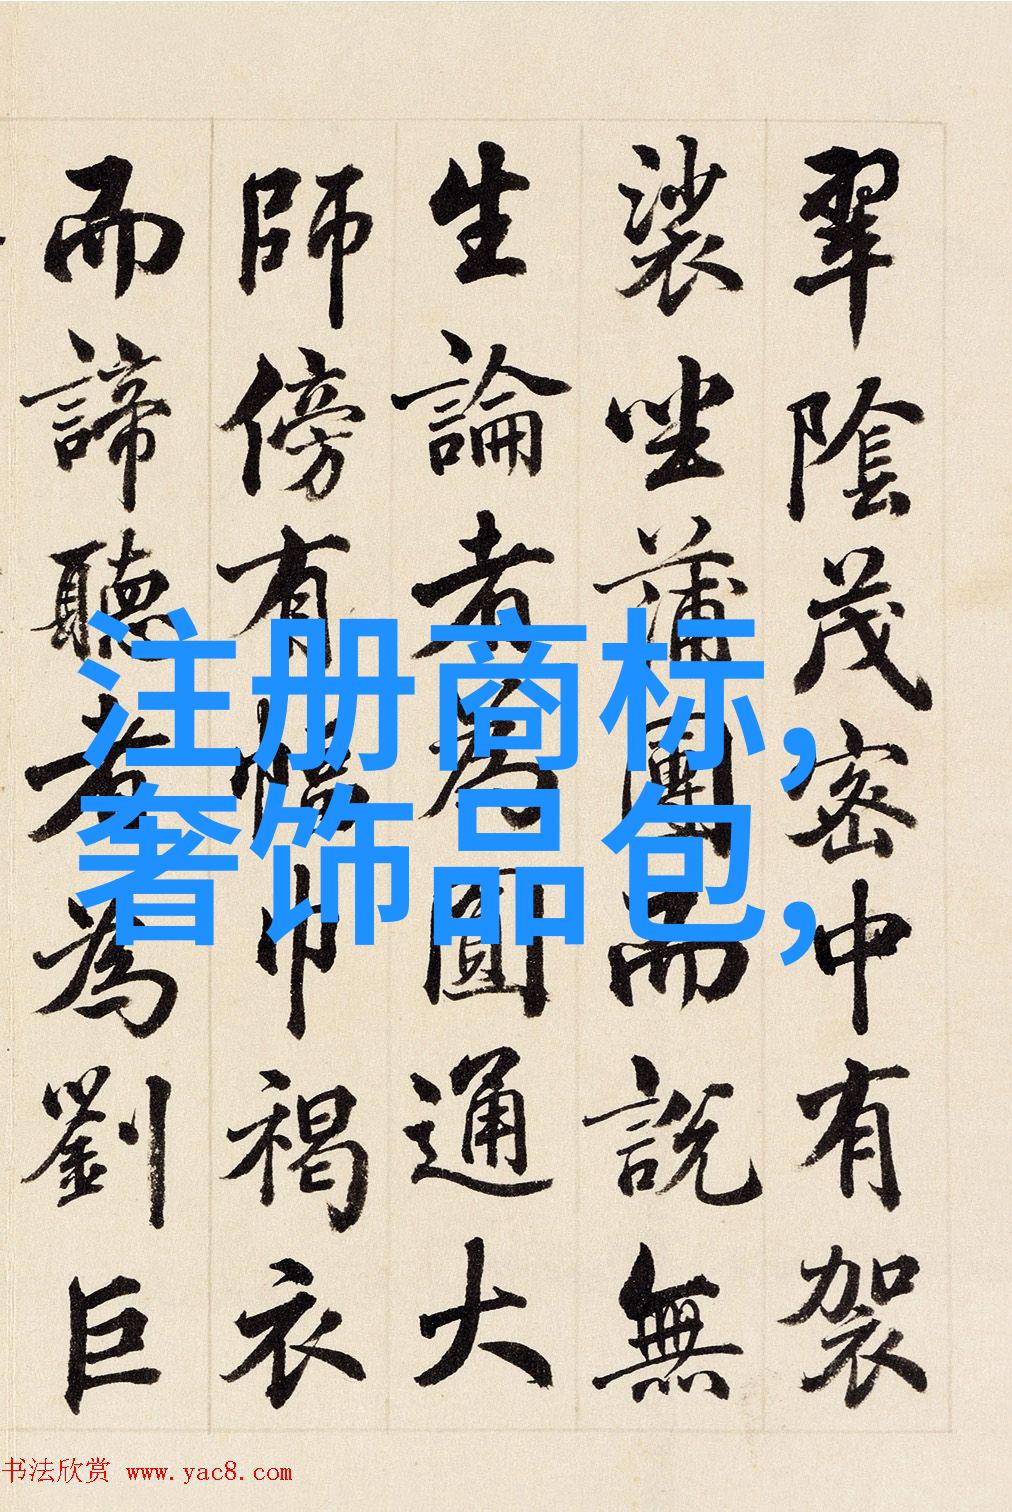 翠陰茂密中有袈
裟坐蒲團而說無
生論者為圓通大
師傍有幅巾褐衣
而諦聽者為劉巨
注册商标,
奢饰品包,
书法欣赏 www.yac8.com